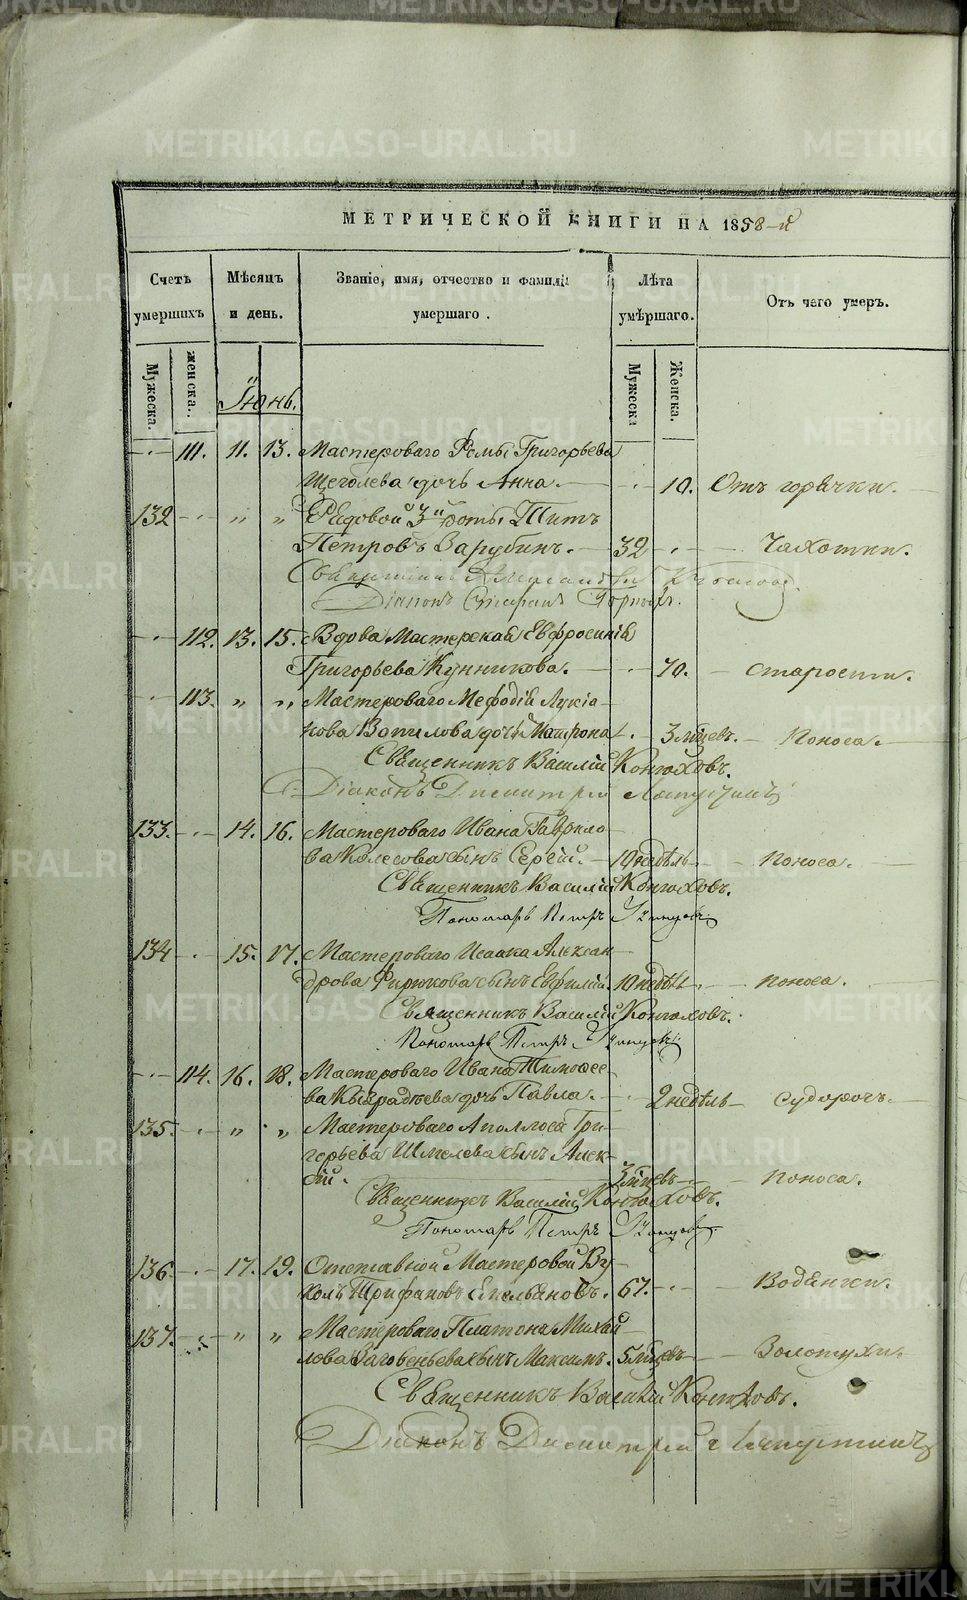 МЕТРИЧЕСКОЙ КНИГИ НА 1858-й
Счетъ умершихъ
Мѣсяцъ и день.
Званіе, имя, отчество и фамилія умершаго.
Лѣта умѣршаго.
Отъ чего умеръ.
Мужеска.
женска.
Мужеска
Женска.
Іюнь.
111. 11. 13. Мастероваго Ѳомы Григорьева
Щеголева дочь Анна. 10. Отъ горячки.
132 " " Рядовой 3й роты Титъ
Петровъ Зарубинъ. 32 Чахотки.
Священникъ
Діаконъ
112. 13. 15. Вдова Мастерская Евфросинія
Григорьева Кунникова. 70. Старости.
113. " " Мастероваго Мефодія Лукіа-
нова Вопилова дочь Матрона 3 мѣсев. Поноса.
Священникъ Василій Конюховъ.
Діаконъ Димитрій Лапустинъ
133. 14. 16. Мастероваго Ивана Гаврило-
ва Колесова сынъ Сергій. 10 недѣль Поноса.
Священникъ Василій Конюховъ.
Пономарь Петръ
134 15. 17. Мастероваго Исаака Алексан-
дрова Фирюкова сынъ Евфимій. 10 недѣль Поноса.
Священникъ Василій Конюховъ.
Пономарь Петръ
114. 16. 18. Мастероваго Ивана Тимоѳее-
ва дочь Павла. 2 недѣль Судорогъ.
135. " " Мастероваго Аполлоса Гри-
горьева Шмелева сынъ Алек-
сій. 3 мѣсев Поноса.
Священникъ Василій Конюховъ.
Пономарь Петръ
136. 17. 19. Отставной Мастеровой Ву-
колъ Трифановъ Емельяновъ. 67. Водянки.
137. " " Мастероваго Платона Михай-
лова сынъ Максимъ. 5 мѣсев Золотухи.
Священникъ Василій Конюховъ.
Діаконъ Димитрій Лапустинъ
METRIKI.GASO-URAL.RU